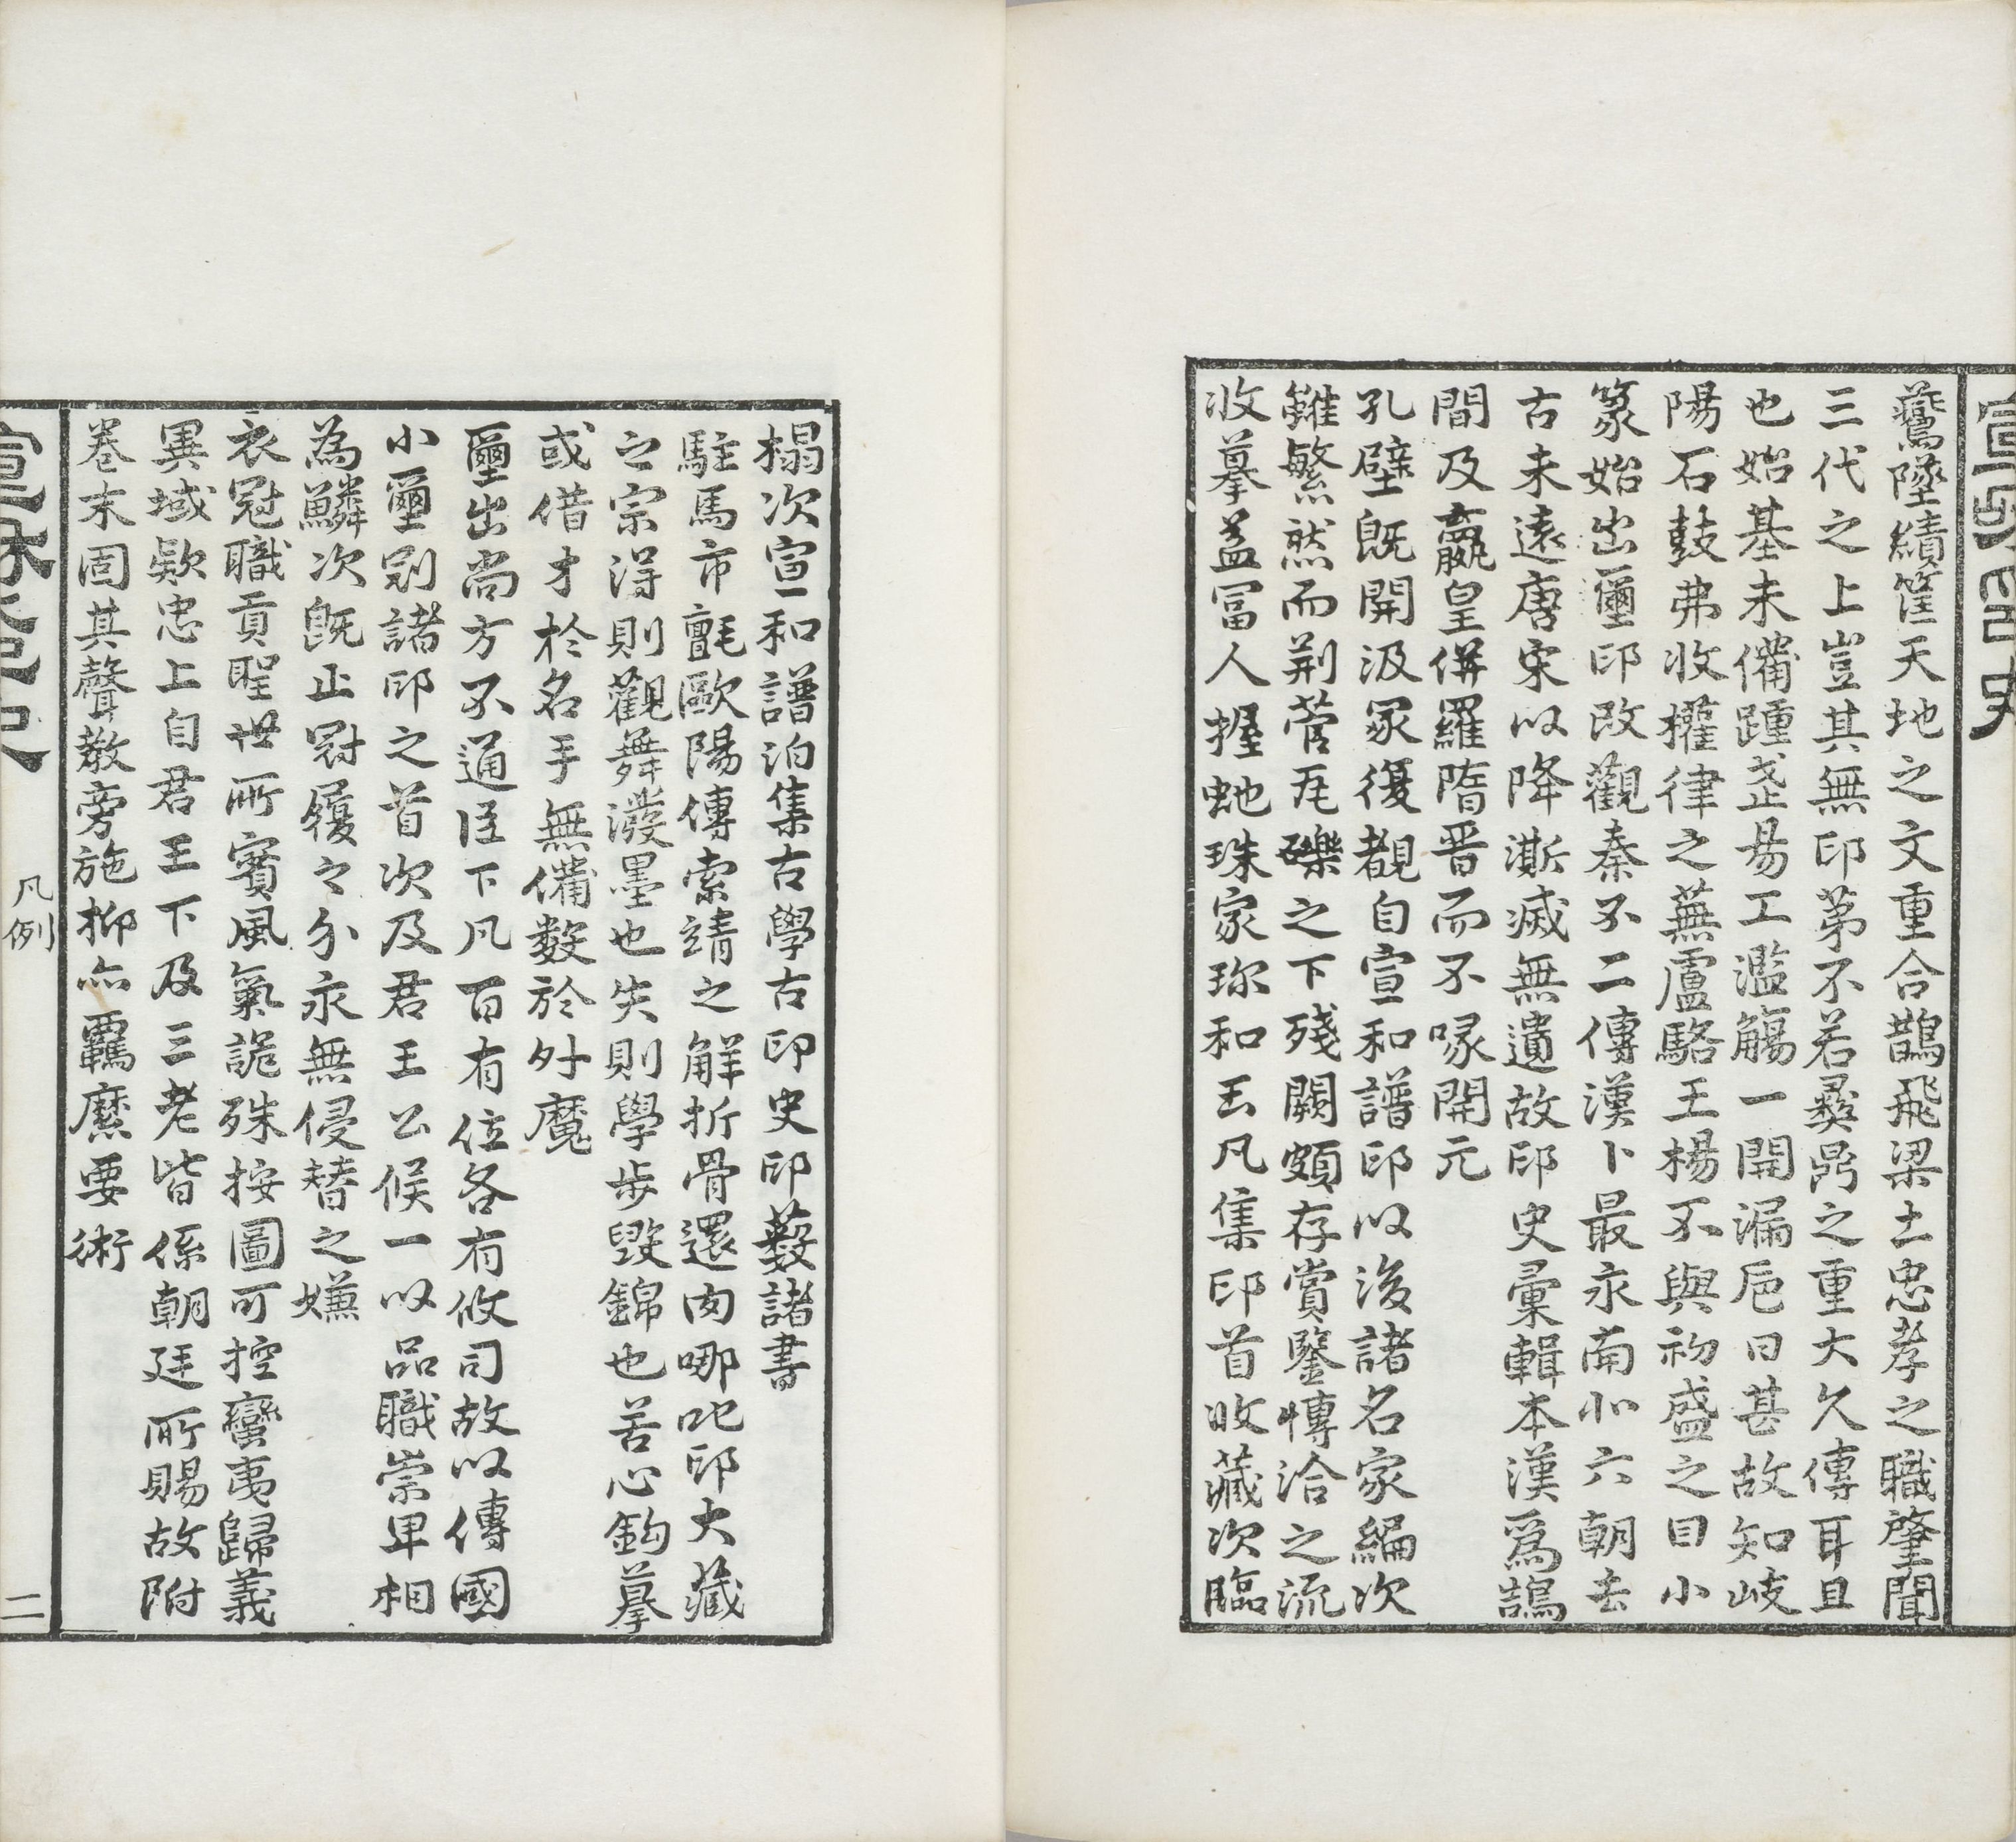 宣和印史
鷰墜績筐天地之文重合鵲飛梁土忠孝之職肇聞
三代之上豈其無印第不若彞鼎之重大久傳耳且
也始基未備踵𡵨易工濫觴一開漏卮日甚故知岐
陽石鼓弗收權律之蕪盧駱王楊不與初盛之目小
篆始出璽印改觀秦不二傳漢卜最永南北六朝去
古未遠唐宋以降澌滅無遺故印史彙輯本漢爲鵠
間及嬴皇併羅隋晉而不喙開元
孔壁既開汲冢復覩自宣和譜印以後諸名家編次
雖繁然而荆菅瓦礫之下殘闕頗存賞鑒愽洽之流
收摹盖冨人握虵珠家珎和玉凡集印首收藏次臨
榻次宣和譜泊集古學古印史印藪諸書
駐馬市氈歐陽傳索靖之觧折骨還肉哪吒印大藏
之宗得則觀舞潑墨也失則學步毀錦也苦心鈎摹
或借才於名手無備數於外魔
璽出尚方不通臣下凡百有位各有攸司故以傳國
小璽别諸印之首次及君王公候一以品職崇卑相
為鱗次既止冠履之分永無侵替之嫌
衣冠職貢聖世所賓風氣詭殊按圖可控蠻夷歸義
異域欵忠上自君王下及三老皆係朝廷所賜故附
卷末固其聲教旁施抑亦羈縻要術
宣和印史
凡例
二